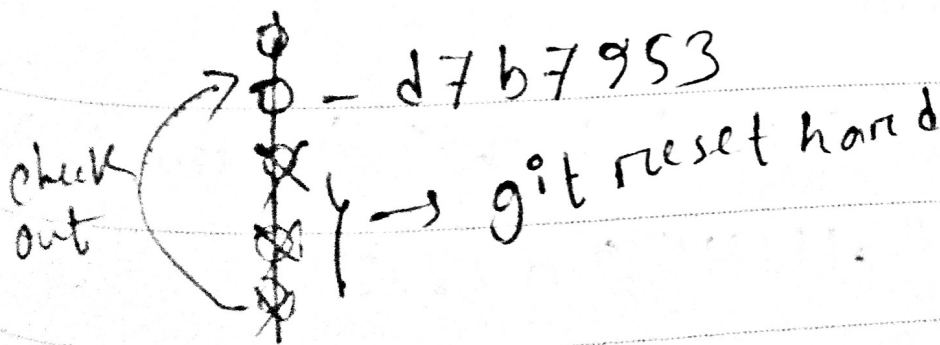 - d7b7953
check
out
} → git reset hard